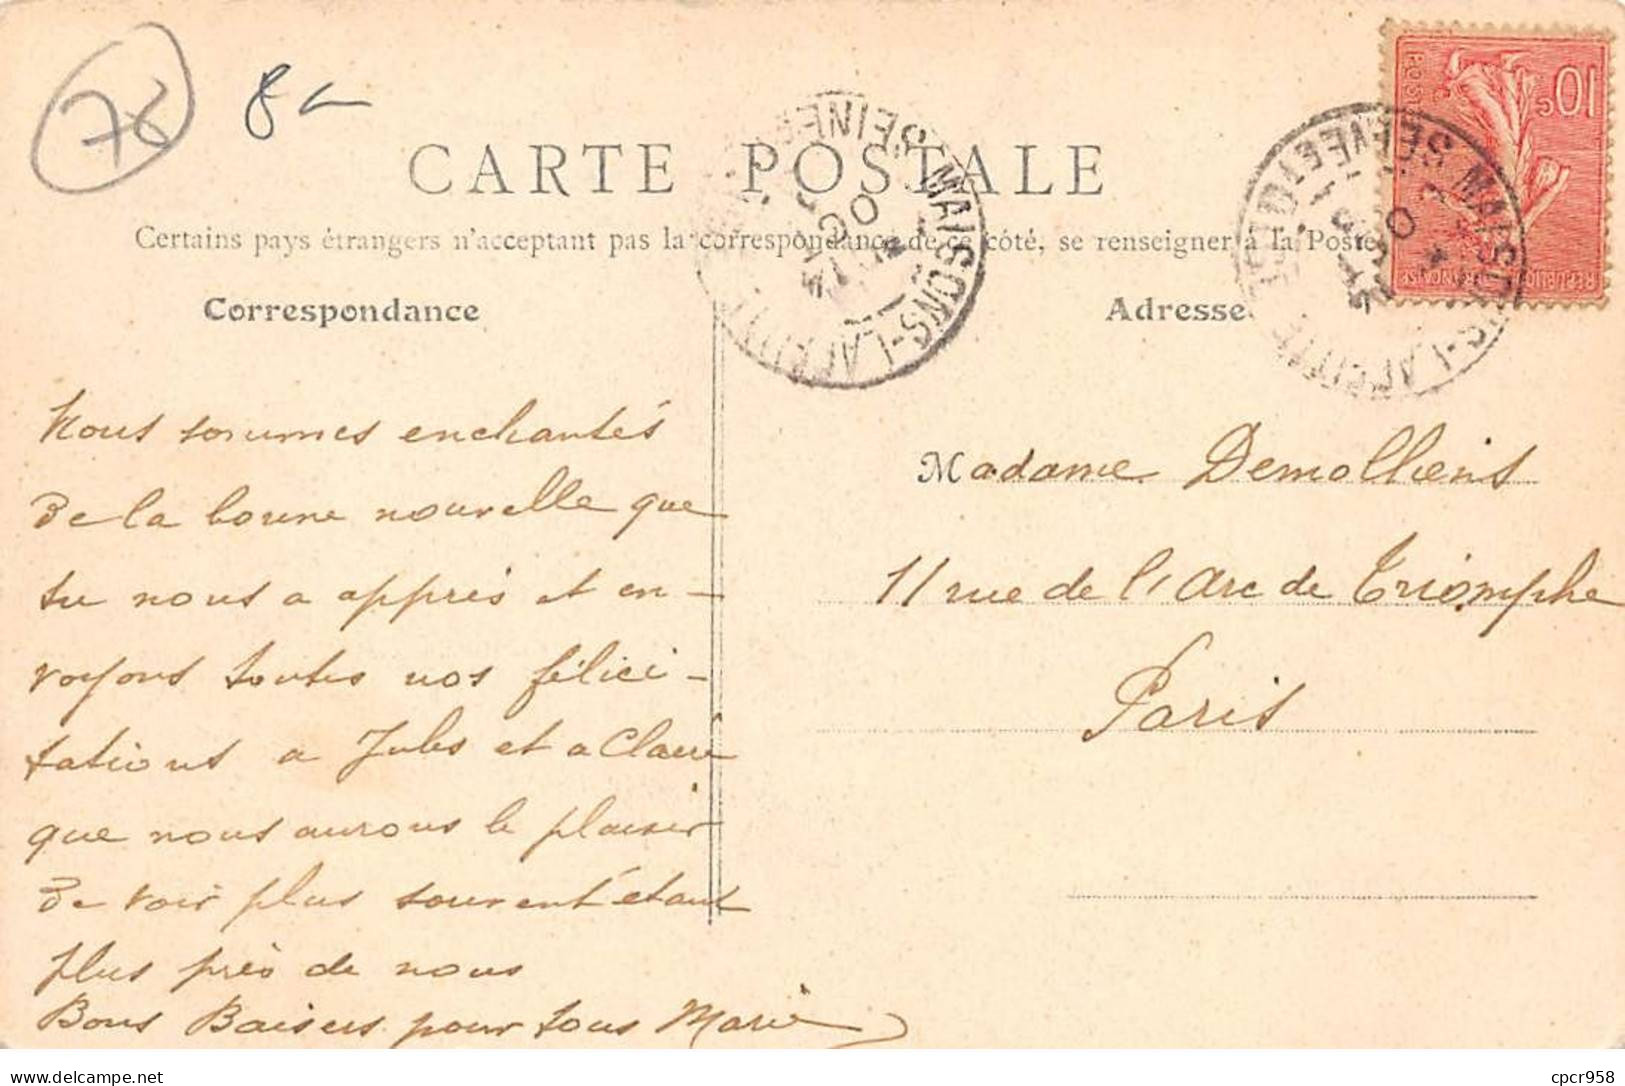 78
8
CARTE POSTALE
Certains pays étrangers n'acceptant pas la correspondance de ce côté, se renseigner à la Poste
Correspondance
Adresse
10c
POSTES
REPUBLIQUE FRANÇAISE
MAISONS-LAFFITTE
SEINE ET OISE
MAISONS-LAFFITTE
SEINE ET OISE
Nous sommes enchantés
de la bonne nouvelle que
tu nous a appris et en-
voyons toutes nos félici-
tations a Jules et a Claire
que nous aurons le plaisir
de voir plus souvent étant
plus près de nous
Bons Baisers pour tous Marie
Madame Demolliens
11 rue de l'Arc de Triomphe
Paris
delcampe.net
cpcr958